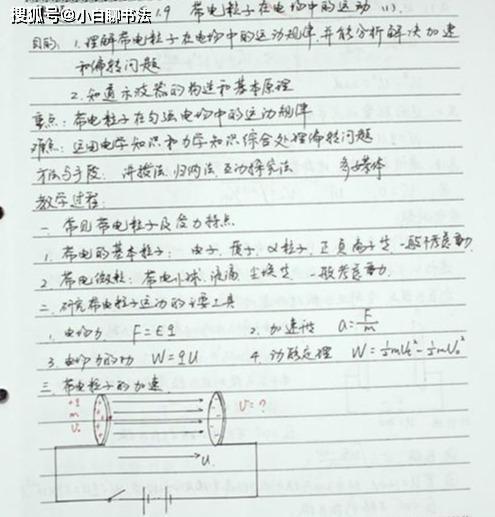 搜狐号@小白聊书法
1.9 带电粒子在电场中的运动 (1).
目的: 1. 理解带电粒子在电场中的运动规律,并能分析解决加速
和偏转问题
2. 知道示波器的构造和基本原理
重点: 带电粒子在匀强电场中的运动规律
难点: 运用电学知识和力学知识综合处理偏转问题
方法与手段: 讲授法, 归纳法, 互动探究法 多媒体
教学过程:
一. 常见带电粒子及受力特点
1. 带电的基本粒子: 电子, 质子, α粒子, 正负离子等 一般不考虑重力.
2. 带电微粒: 带电小球, 液滴, 尘埃等 一般考虑重力.
二. 研究带电粒子运动的主要工具
1. 电场力 F=Eq 2. 加速度 a=F/m
3. 电场力的功 W=qU 4. 动能定理 W=½mUt²-½mU0²
三. 带电粒子的加速
+q
m
V0
V=?
U